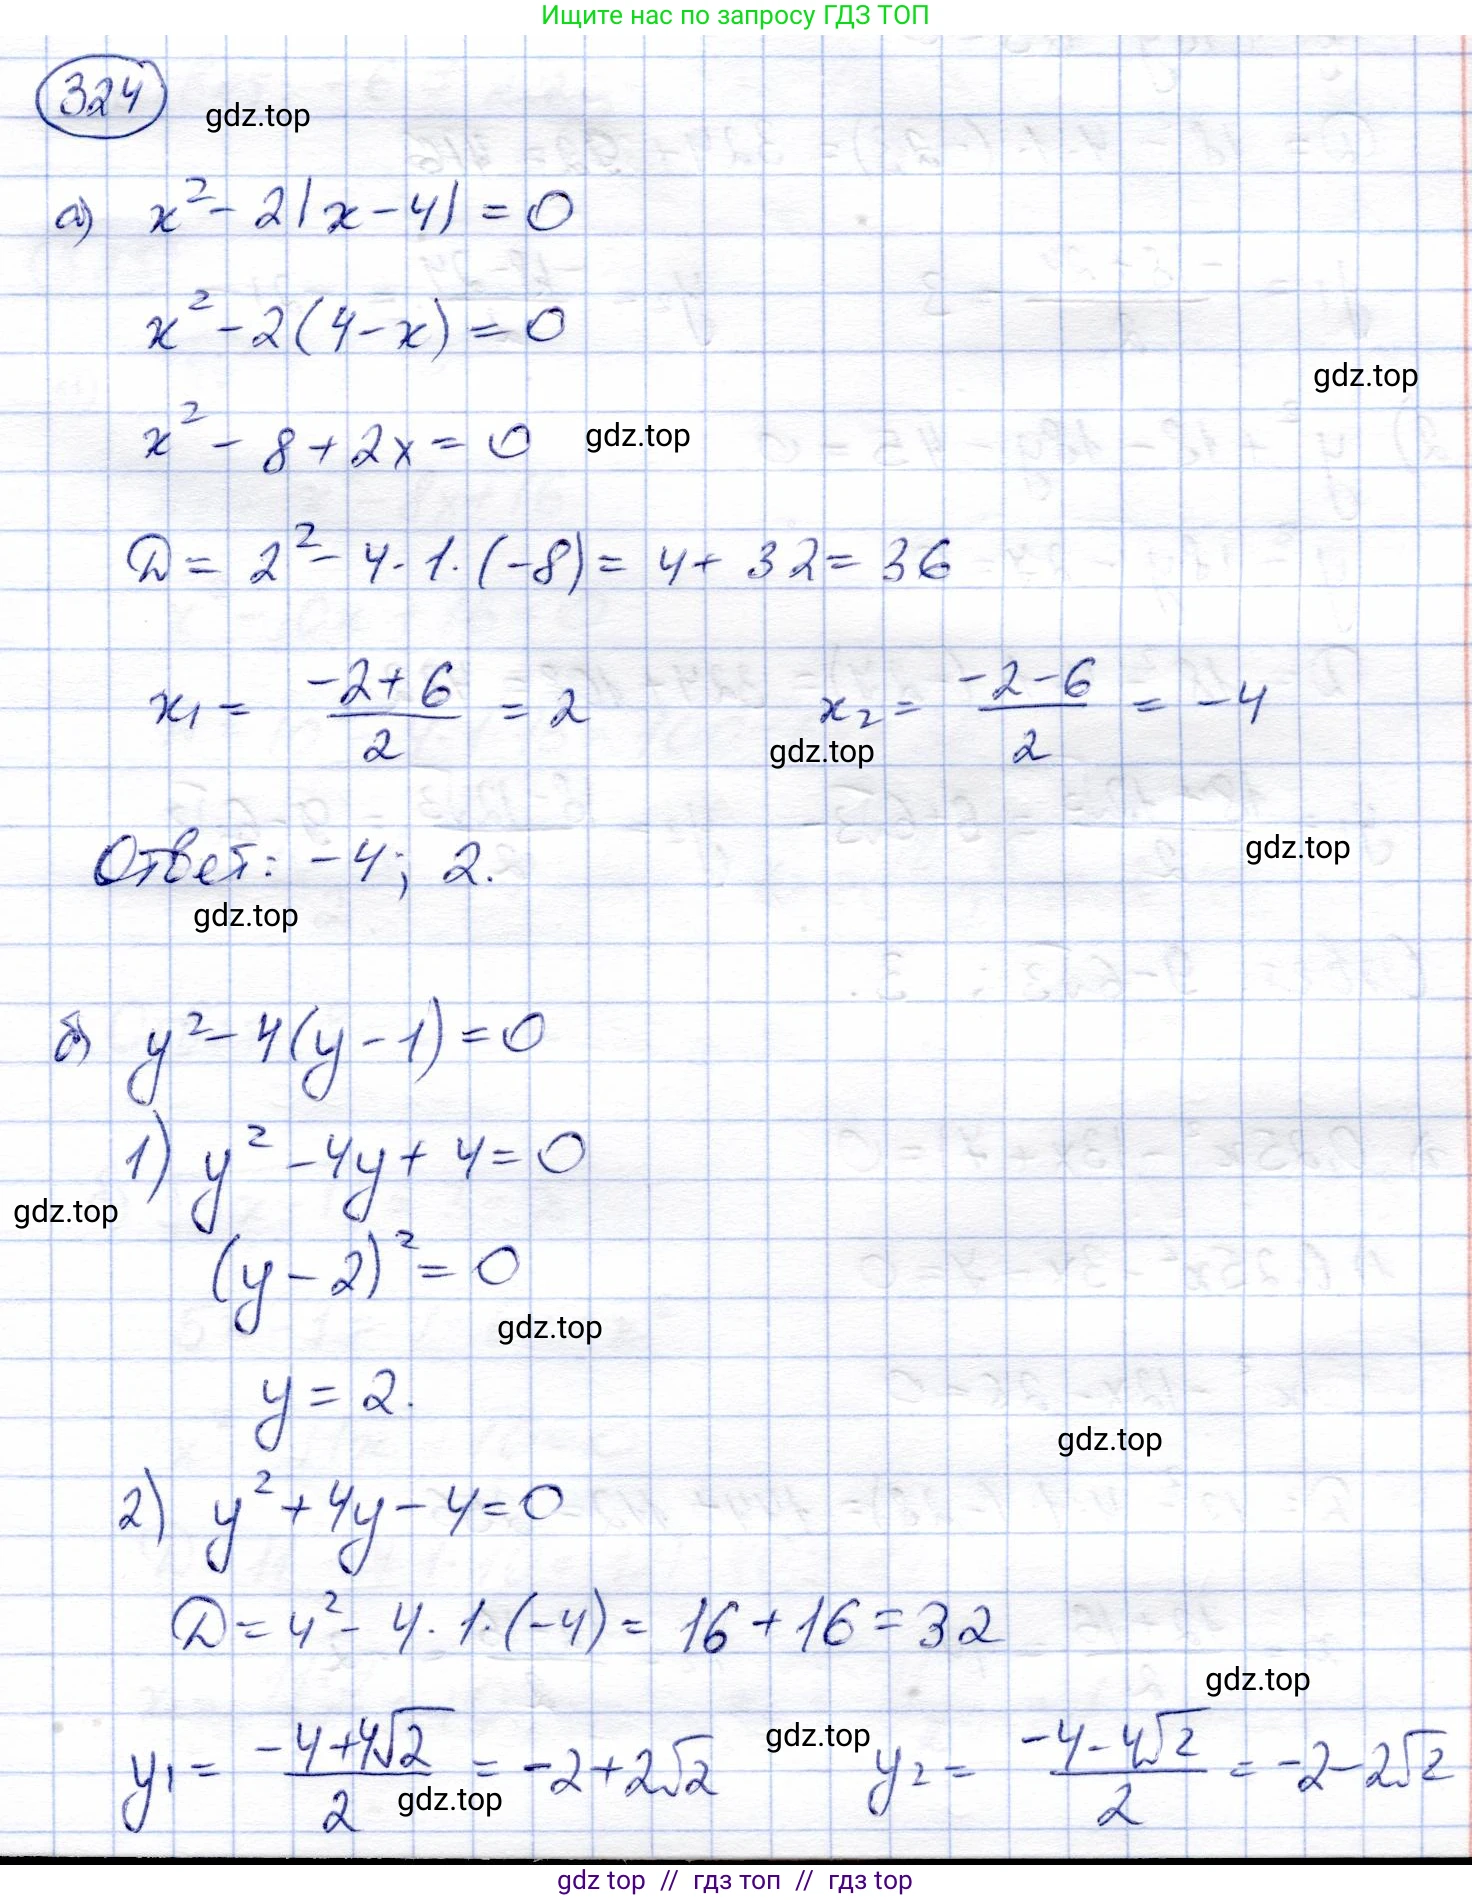 Ищите нас по запросу ГДЗ ТОП
324
gdz.top
а) x² - 2|x - 4| = 0
x² - 2(4 - x) = 0
gdz.top
x² - 8 + 2x = 0
gdz.top
D = 2² - 4 · 1 · (-8) = 4 + 32 = 36
x₁ = (-2 + 6)/2 = 2 x₂ = (-2 - 6)/2 = -4
gdz.top
Ответ: -4; 2.
gdz.top
gdz.top
б) y² - 4(y - 1) = 0
1) y² - 4y + 4 = 0
gdz.top
(y - 2)² = 0
gdz.top
y = 2.
gdz.top
2) y² + 4y - 4 = 0
D = 4² - 4 · 1 · (-4) = 16 + 16 = 32
gdz.top
y₁ = (-4 + 4√2)/2 = -2 + 2√2 y₂ = (-4 - 4√2)/2 = -2 - 2√2
gdz.top
gdz.top
gdz top // гдз топ // гдз top